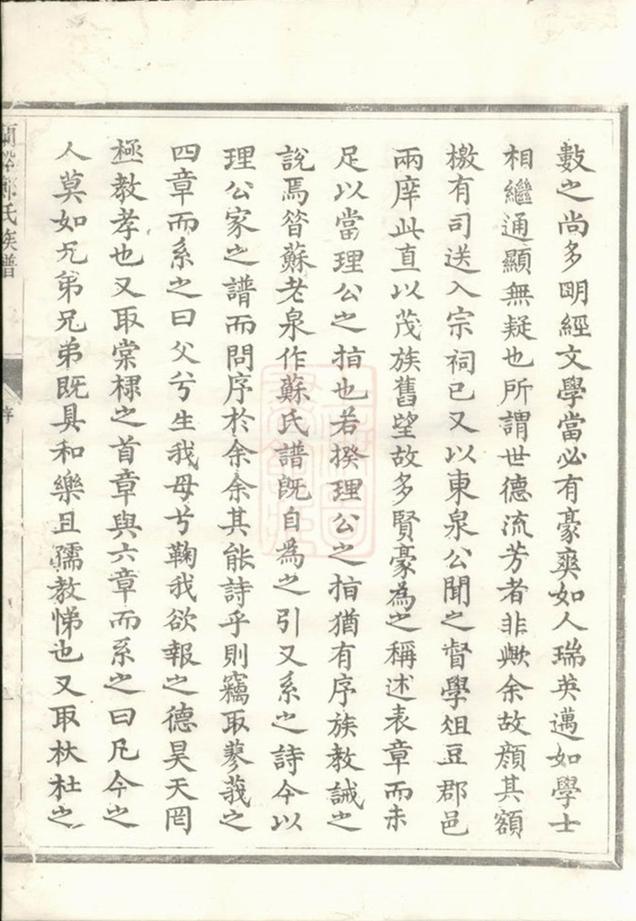 數之尚多明經文學當必有豪爽如人瑞英邁如學士
相繼通顯無疑也所謂世德流芳者非歟余故顏其額
檄有司送入宗祠已又以東泉公聞之督學俎豆郡邑
兩庠此直以茂族舊望故多賢豪為之稱述表章而未
足以當理公之指也若揆理公之指猶有序族教誡之
說焉昝蘇老泉作蘇氏譜旣自為之引又系之詩今以
理公家之譜而問序於余余其能詩乎則竊取蓼莪之
四章而系之曰父兮生我母兮鞠我欲報之德昊天罔
極教孝也又取棠棣之首章與六章而系之曰凡今之
人莫如兄弟兄弟既具和樂且孺教悌也又取杕杜之
氏族譜
序